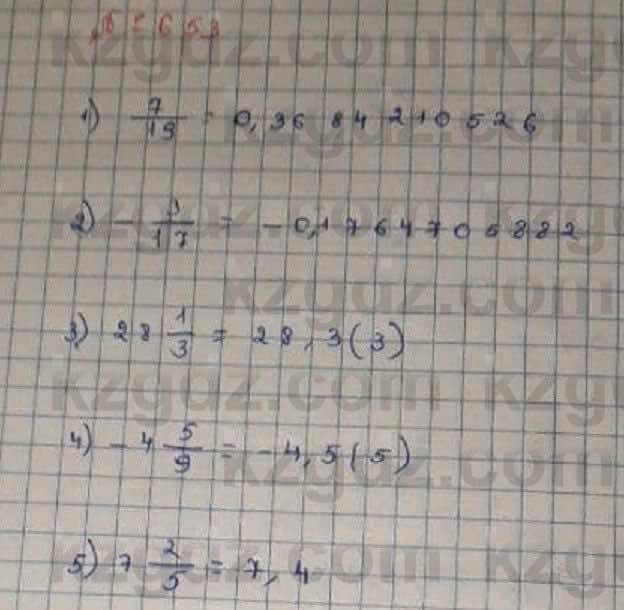 № 653
1) 7/19 = 0,36 84 210 526
2) - 3/17 = - 0,1764705882
3) 28 1/3 = 28,3(3)
4) - 4 5/9 = - 4,5(5)
5) 7 2/5 = 7,4
kzgdz.com